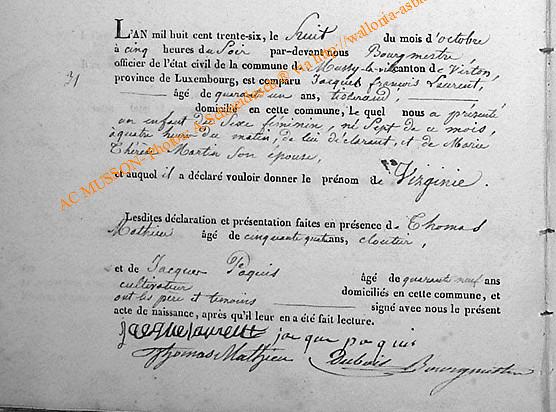 L'AN mil huit cent trente-six, le huit du mois d'octobre
à cinq heures du Soir par-devant nous Bourgmestre
officier de l'état civil de la commune de Mussy-la-ville canton de Virton,
31
province de Luxembourg, est comparu Jacques françois Laurent,
âgé de quarant un ans, tisserand,
domicilié en cette commune, le quel nous a présenté
un enfant du Sexe féminin, né Sept de ce mois,
à quatre heures du matin, de lui déclarant, et de Marie
Thérèse Martin Son épouse,
et auquel il a déclaré vouloir donner le prénom de Virginie.
Lesdites déclaration et présentation faites en présence de Thomas
Mathieu âgé de cinquante quatre ans, cloutier,
et de Jacques Paquis âgé de quarante neuf ans
cultivateur domiciliés en cette commune, et
ont les père et témoins signé avec nous le présent
acte de naissance, après qu'il leur en a été fait lecture.
jacque laurent jacque paquis
Thomas Mathieu Dubois Bourgmestre
AC MUSSON- Photos via http://wallonia-asb